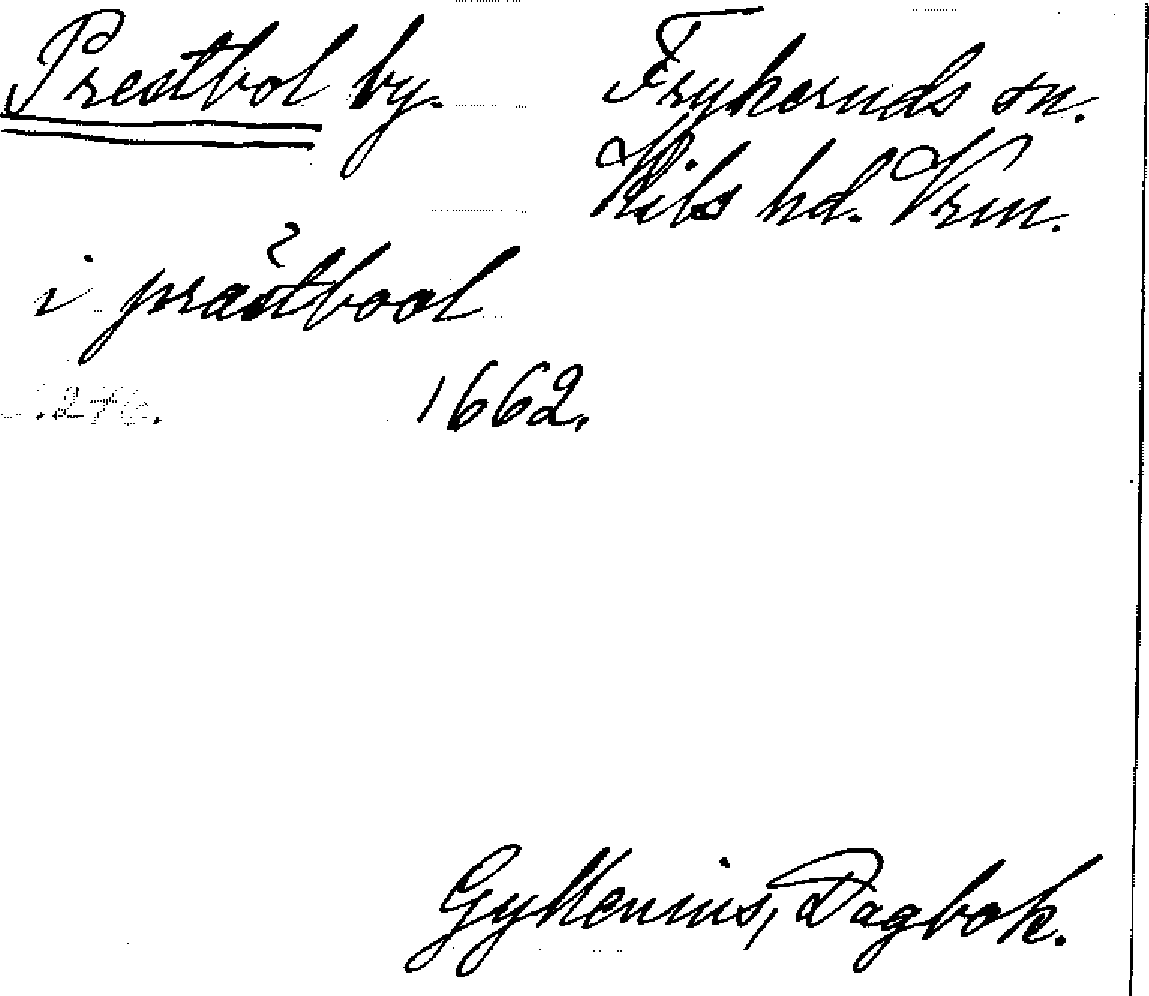 Prestbol by. Frykeruds sn.
Kils hd. Vrm.
i prästbool
.276.
1662.
Gyllenius, Dagbok.